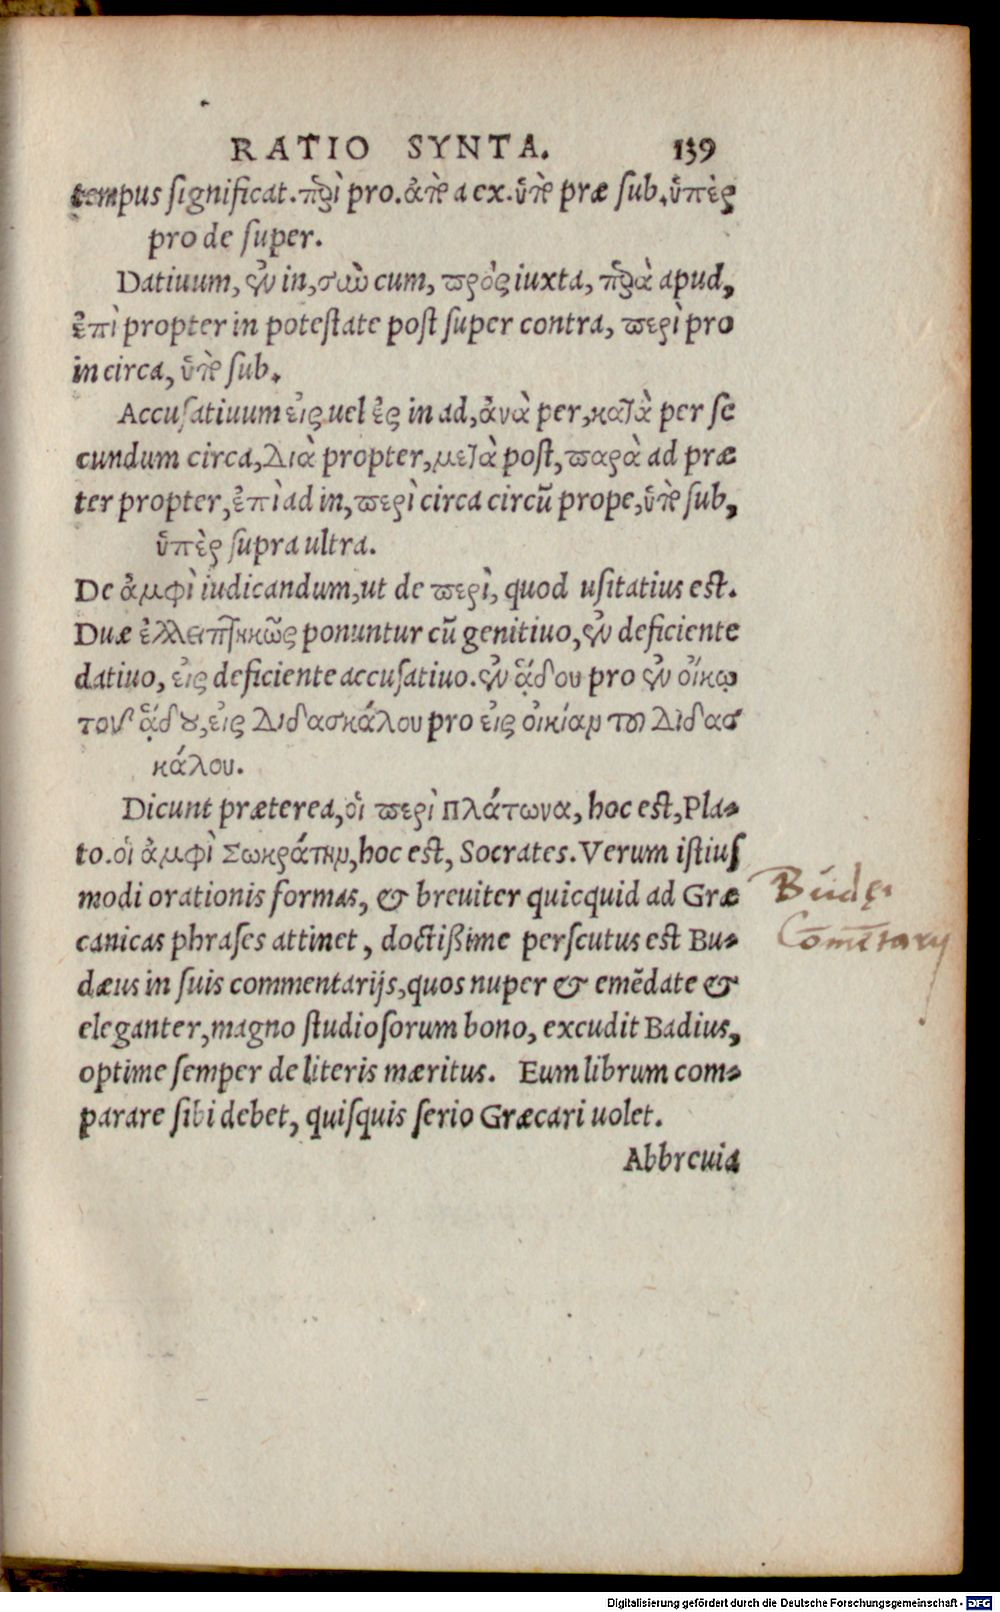 RATIO SYNTA. 139
tempus significat. πρὶ pro. ἀπὸ a ex. ὑπὸ præ sub. ὑπὲρ
pro de super.
Datiuum, ἐν in, σὺν cum, πρὸς iuxta, παρὰ apud,
ἐπὶ propter in potestate post super contra, περὶ pro
in circa, ὑπὸ sub.
Accusatiuum εἰς uel ἐς in ad, ἀνὰ per, κατὰ per se
cundum circa, διὰ propter, μετὰ post, παρὰ ad præ
ter propter, ἐπὶ ad in, περὶ circa circū prope, ὑπὸ sub,
ὑπὲρ supra ultra.
De ἀμφὶ iudicandum, ut de περὶ, quod usitatius est.
Duæ ἐλλειπτικῶς ponuntur cū genitiuo, ἐν deficiente
datiuo, εἰς deficiente accusatiuo. ἐν ᾅδου pro ἐν οἴκῳ
τοῦ ᾅδου, εἰς διδασκάλου pro εἰς οἰκίαν τοῦ διδασ
κάλου.
Dicunt præterea, οἱ περὶ Πλάτωνα, hoc est, Pla-
to. οἱ ἀμφὶ Σωκράτην, hoc est, Socrates. Verum istius
modi orationis formas, & breuiter quicquid ad Græ
canicas phrases attinet, doctißime persecutus est Bu-
dæus in suis commentarijs, quos nuper & emēdate &
eleganter, magno studiosorum bono, excudit Badius,
optime semper de literis mæritus. Eum librum com-
parare sibi debet, quisquis serio Græcari uolet.
Abbreuia
Budę.
Com̄ētarij
Digitalisierung gefördert durch die Deutsche Forschungsgemeinschaft - DFG